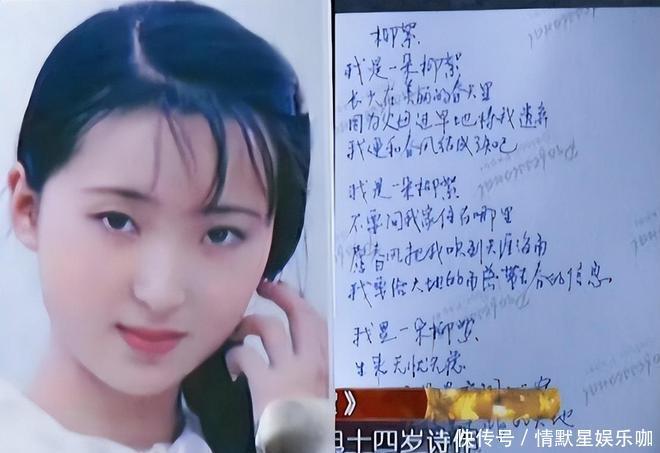 柳絮
我是一朵柳絮
长大在美丽的春天里
因为父母过早地将我遗弃
我便和春风结成了知己
我是一朵柳絮
不要问我家住在哪里
愿春风把我吹到天涯海角
我要给大地的角落带去春的信息
我是一朵柳絮
生来无忧无虑
》
十四岁诗作
搜狐号/情默星娱乐咖
Professional